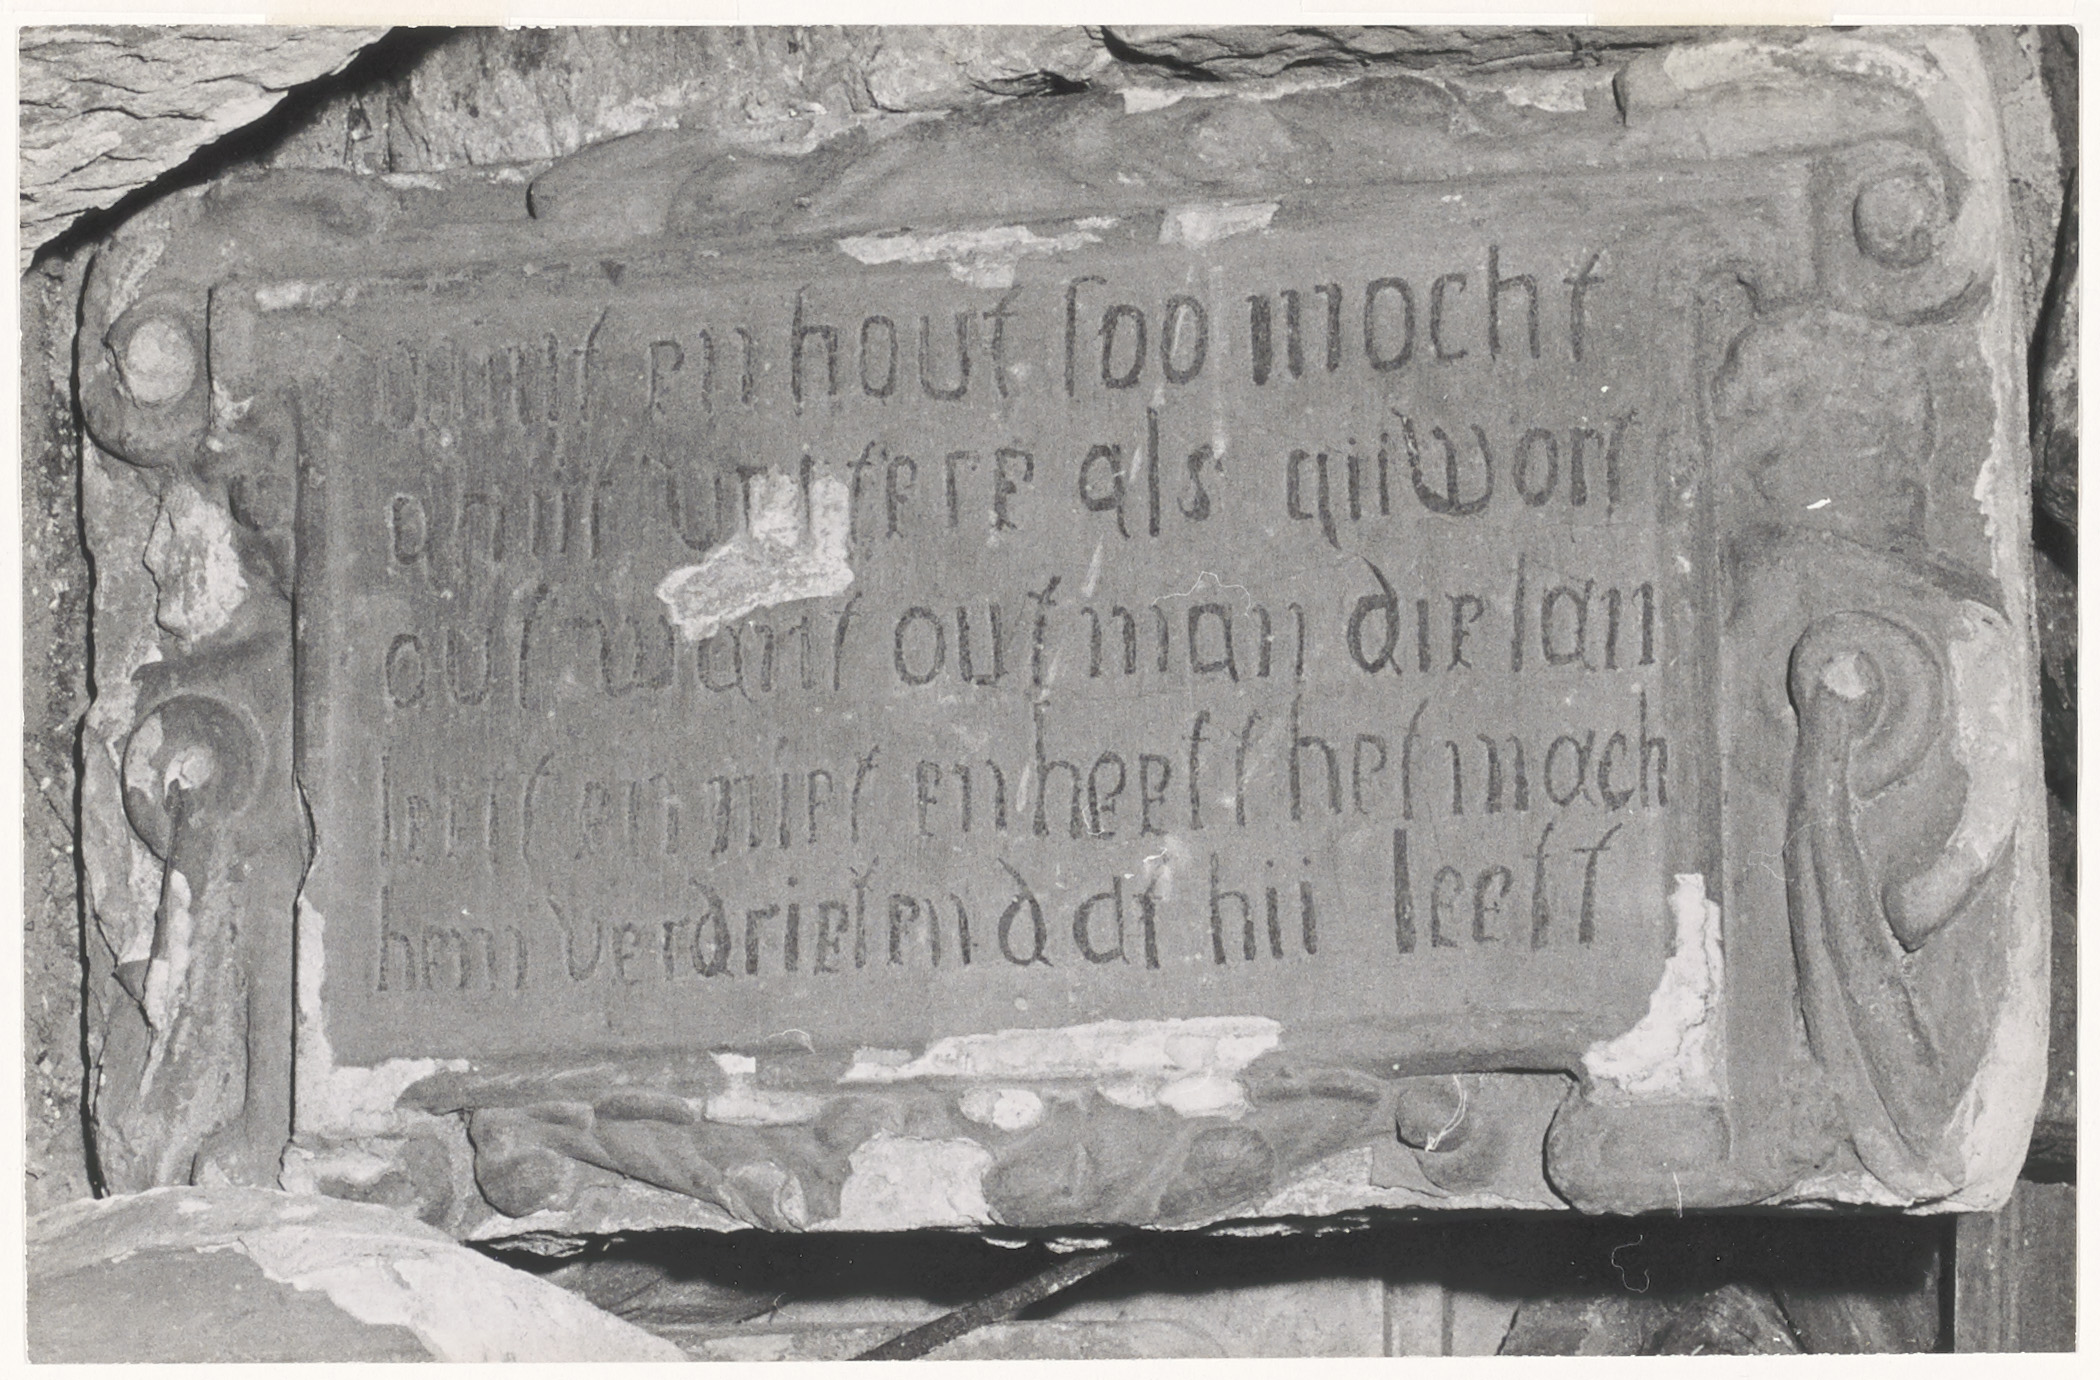 en hout soo mocht
ghiit vertere als gii wort
out want out man die lan
leeft en niet en heeft het mach
hem verdrieten dat hii leeft